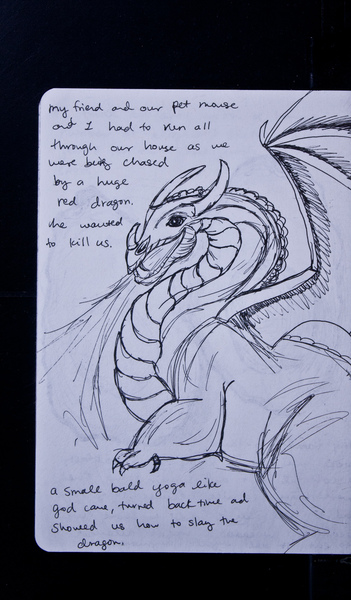 my friend and our pet mouse
and I had to run all
through our house as we
were being chased
by a huge
red dragon.
He wanted
to kill us.
a small bald yoga like
god came, turned back time ad
showed us how to slay the
dragon.